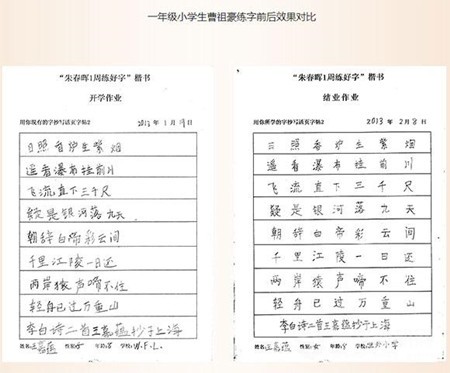 一年级小学生曹祖豪练字前后效果对比
“朱春晖1周练好字”楷书
开学作业
用你现有的字抄写活页字帖2
日照香炉生紫烟
遥看瀑布挂前川
飞流直下三千尺
疑是银河落九天
朝辞白帝彩云间
千里江陵一日还
两岸猿声啼不住
轻舟已过万重山
李白诗二首王嘉蕴抄于上海
姓名 性别 女 年龄 学校 W.F.L.
“朱春晖1周练好字”楷书
结业作业
用你所学的字抄写活页字帖2
2013年2月8日
日照香炉生紫烟
遥看瀑布挂前川
飞流直下三千尺
疑是银河落九天
朝辞白帝彩云间
千里江陵一日还
两岸猿声啼不住
轻舟已过万重山
李白诗二首王嘉蕴抄于上海
姓名 性别 女 年龄 学校 小学